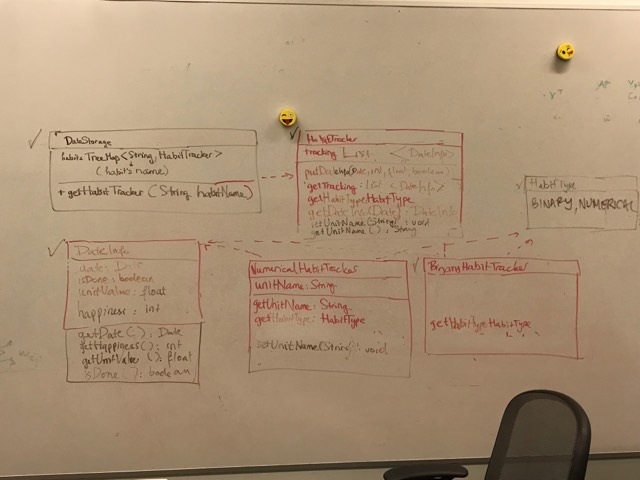 DataStorage
habits TreeMap<String, HabitTracker>
(habit's name)
+ getHabitTracker (String habitName)
HabitTracker
tracking List <DateInfo>
getTracking: List <DateInfo>
getHabitType: HabitType
getDateInfo(Date): DateInfo
setUnitName(String): void
getUnitName(): String
HabitType
BINARY, NUMERICAL
DateInfo
date: Date
isDone: boolean
unitValue: float
happiness: int
getDate(): Date
getHappiness(): int
getUnitValue(): float
isDone(): boolean
NumericalHabitTracker
unitName: String
getUnitName: String
getHabitType: HabitType
setUnitName(String): void
BinaryHabitTracker
getHabitType HabitType